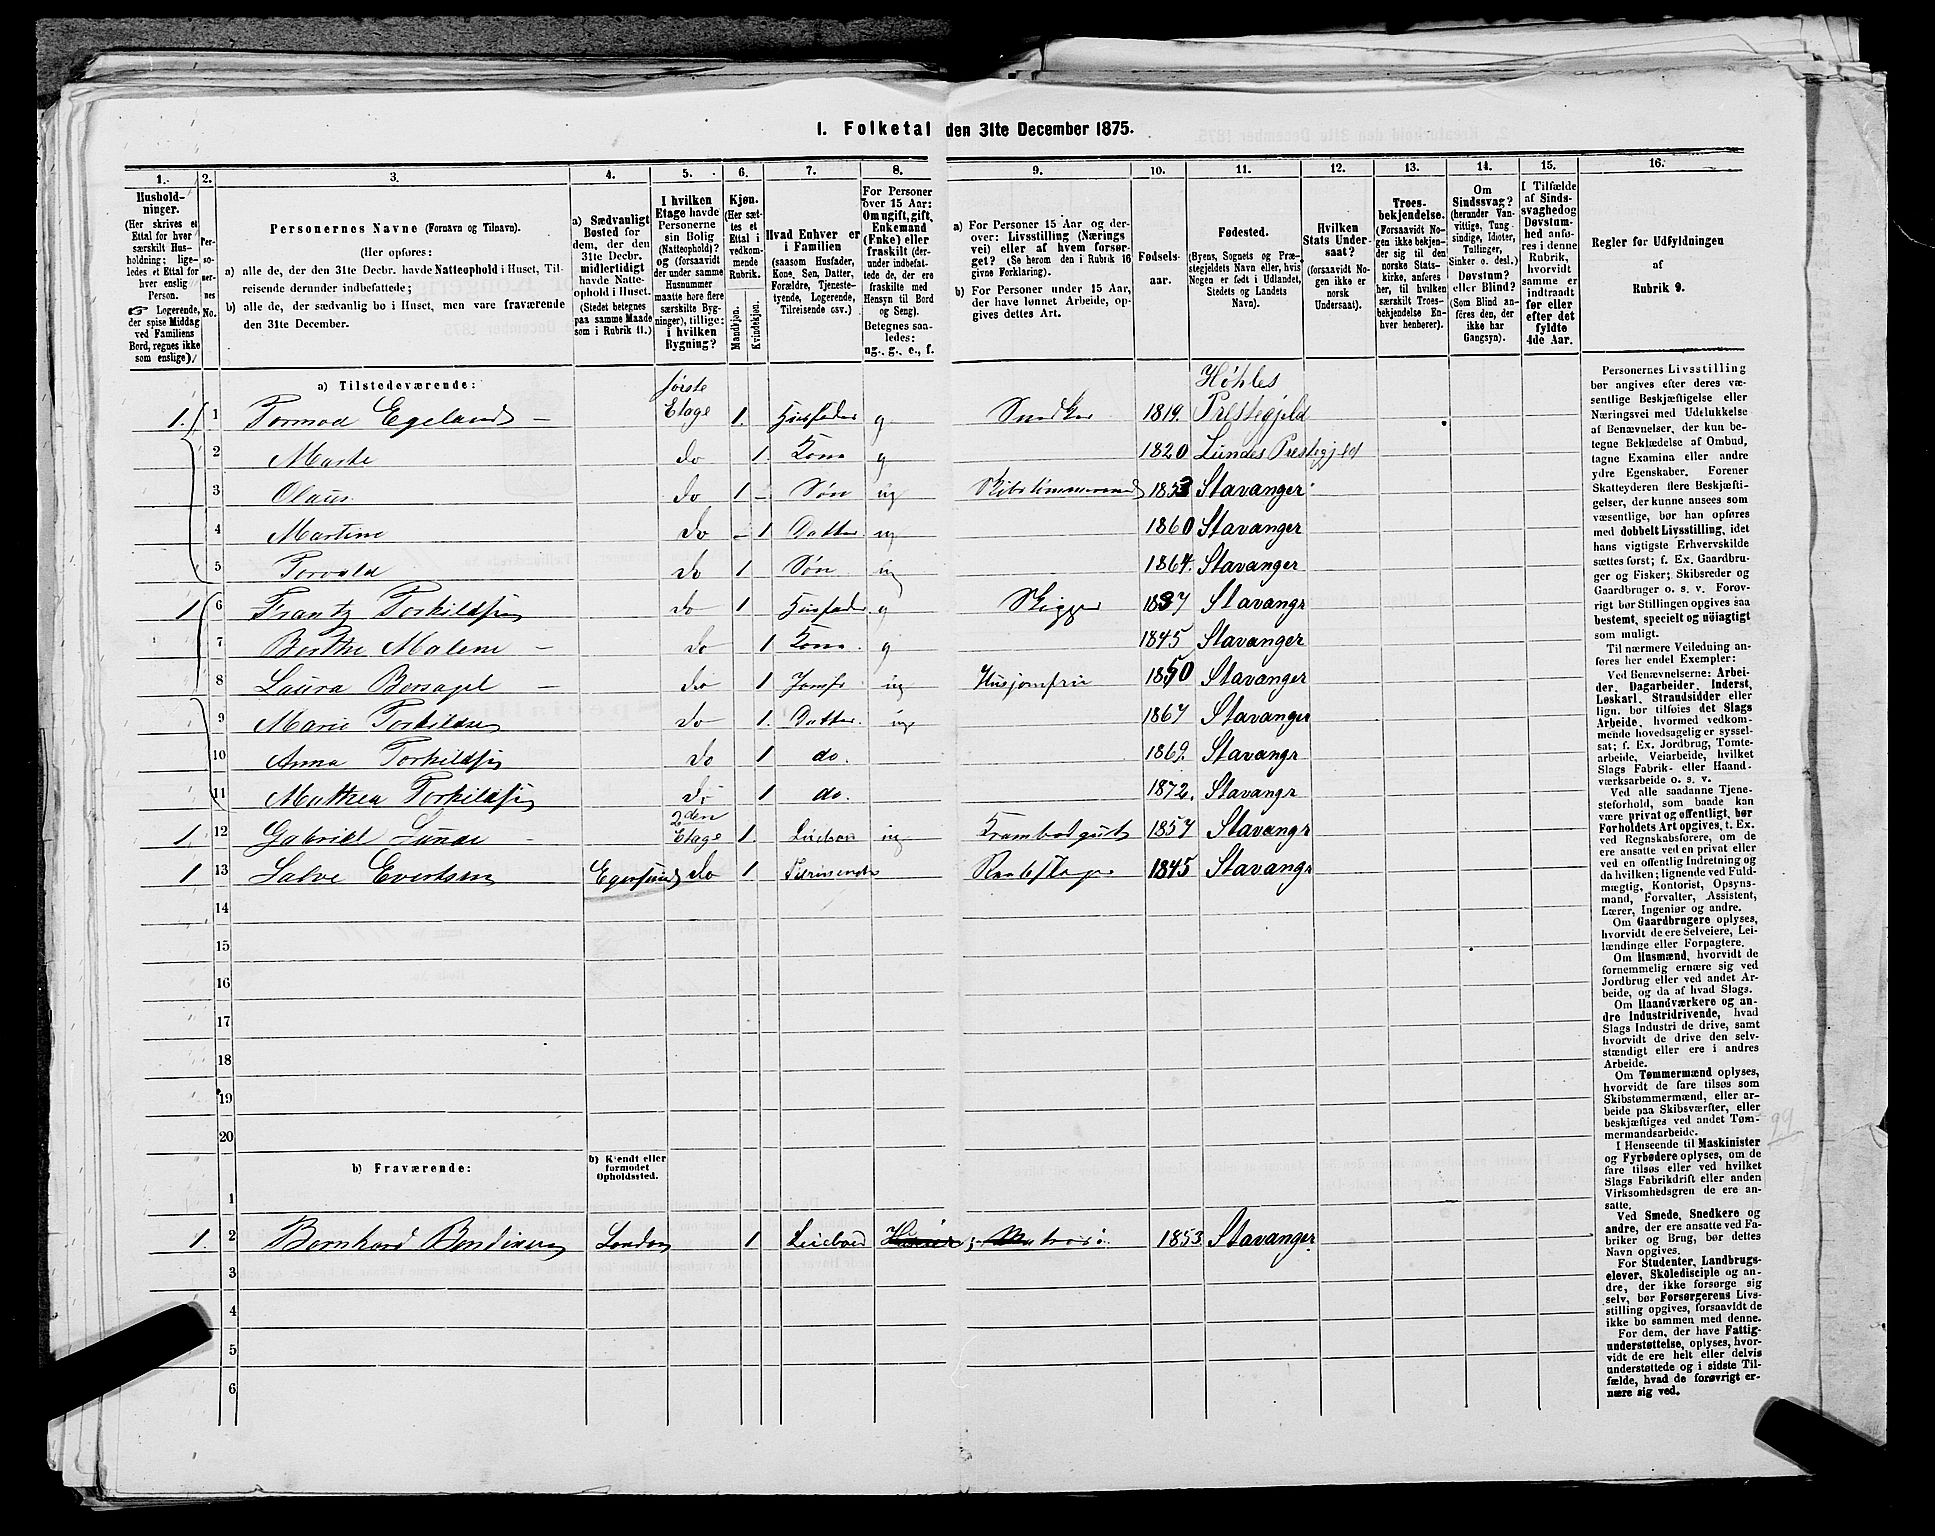 1. Folketal den 31te December 1875.
1. 2. 3. 4. 5. 6. 7. 8. 9. 10. 11. 12. 13. 14. 15. 16.
Hushold-
ninger.
(Her skrives et
Ettal for hver
særskilt Hus-
holdning; lige-
ledes et Ettal for
hver enslig
Person.
☞ Logerende,
der spise Middag
ved Familiens
Bord, regnes ikke
som enslige)
Per-
so-
ner-
nes
No.
Personernes Navne (Fornavn og Tilnavn).
(Her opføres:
a) alle de, der den 31te Decbr. havde Natteophold i Huset, Til-
reisende derunder indbefattede;
b) alle de, der sædvanlig bo i Huset, men vare fraværende
den 31te December.
a) Sædvanligt
Bosted for
dem, der den
31te Decbr.
midlertidigt
havde Natte-
ophold i Huset.
(Stedet betegnes
paa samme Maade
som i Rubrik 11.)
I hvilken
Etage havde
Personerne
sin Bolig
(Natteophold)?
og (forsaavidt
der under samme
Husnummer
maatte høre flere
særskilte Byg-
ninger), tillige:
i hvilken
Bygning?
Kjøn.
(Her sæt-
tes et
Ettal i
vedkom-
mende
Rubrik.
Mandkjøn.
Kvindekjøn.
Hvad Enhver er
i Familien
(saasom Husfader,
Kone, Søn, Datter,
Forældre, Tjeneste-
tyende, Logerende,
Tilreisende osv.)
For Personer
over 15 Aar:
Om ugift, gift,
Enkemand
(Enke) eller
fraskilt (der-
under indbefat-
tede de, der ere
fraskilte med
Hensyn til Bord
og Seng).
Betegnes saa-
ledes:
ug., g., e., f.
a) For Personer 15 Aar og der-
over: Livsstilling (Nærings
vei) eller af hvem forsør-
get? (Se herom den i Rubrik 16
givne Forklaring).
b) For Personer under 15 Aar,
der have lønnet Arbeide, op-
gives dettes Art.
Fødsels-
aar.
Fødested.
(Byens, Sognets og Præ-
stegjeldets Navn eller, hvis
Nogen er født i Udlandet,
Stedets og Landets
Navn).
Hvilken
Stats Under-
saat?
(forsaavidt No-
gen ikke er
norsk
Undersaat).
Troes-
bekjendelse.
(Forsaavidt No-
gen ikke bekjen-
der sig til den
norske Stats-
kirke, anføres
her, til hvilken
særskilt Troes-
bekjendelse En-
hver henhører).
Om
Sindssvag?
(herunder Van-
vittige, Tung-
sindige, Idioter,
Tullinger,
Sinker o. desl.)
Døvstum?
eller Blind?
(Som Blind an-
føres den, der
ikke har
Gangsyn).
I Tilfælde
af Sinds-
svaghed og
Døvstum-
hed anfø-
res i denne
Rubrik,
hvorvidt
samme er
indtraadt
før eller
efter det
fyldte
4de Aar.
Regler for Udfyldningen
af
Rubrik 9.
a) Tilstedeværende:
1. 1 Tormod Egeland første Etage 1. Husfader g Snedker 1819. Høhles Prestegjeld
2 Marte do 1 Kone g 1820 Lundes Prestegjeld
3 Olaus do 1 Søn ug Skibstimmermand 1853 Stavanger
4 Martine do 1 Datter ug 1860 Stavanger
5 Torvald do 1 Søn ug 1864. Stavanger
1 6 Frantz Torkildsen do 1 Husfader g Skipper 1837 Stavangr
7 Berthe Malene do 1 Kone g 1845 Stavanger
8 Laura Bersagel do 1 Jomfr ug Husjomfru 1850 Stavanger
9 Marie Torkildsen do 1. Datter ug 1867 Stavanger
10 Anna Torkildsen do 1 do. 1869. Stavangr
11 Mathea Torkildsen do 1 do. 1872. Stavangr
1. 12 Gabriel Lunde 2den Etage 1. ug Krambodgut 1857 Stavangr
1 13 Salve Evertsen Egersund do 1 1845 Stavangr
14
15
16
17
18
19
20
b) Fraværende:
b) Kjendt eller
formodet
Opholdssted.
1
1. 2 Bernhard London 1 Matros 1853 Stavanger.
3
4
5
6
Personernes Livsstilling
bør angives efter deres væ-
sentlige Beskjæftigelse eller
Næringsvei med Udelukkelse
af Benævnelser, der kun be-
tegne Beklædelse af Ombud,
tagne Examina eller andre
ydre Egenskaber. Forener
Skatteyderen flere Beskjæfti-
gelser, der kunne ansees som
væsentlige, bør han opføres
med dobbelt Livsstilling, idet
hans vigtigste Erhvervskilde
sættes først; f. Ex. Gaardbru-
ger og Fisker; Skibsreder og
Gaardbruger o. s. v. Forov-
rigt bør Stillingen opgives saa
bestemt, specielt og nöiagtigt
som muligt.
Til nærmere Veiledning an-
føres her endel Exempler:
Ved Benævnelserne: Arbei-
der, Dagarbeider, Inderst,
Løskarl, Strandsidder eller
lign. bør tilføies det Slags
Arbeide, hvormed vedkom-
mende hovedsagelig er syssel-
sat; f. Ex. Jordbrug, Tomte-
arbeide, Veiarbeide, hvilket
Slags Fabrik- eller Haand-
værksarbeide o. s. v.
Ved alle saadanne Tjene-
steforhold, som baade kan
være privat og offentlig, bør
Forholdets Art opgives, t. Ex.
ved Regnskabsførere, om de
ere ansatte ved en privat eller
ved en offentlig Indretning og
da hvilken; lignende ved Fuld-
mægtig, Kontorist, Opsyns-
mand, Forvalter, Assistent,
Lærer, Ingeniør og andre.
Om Gaardbrugere oplyses,
hvorvidt de ere Selveiere, Lei-
lændinge eller Forpagtere.
Om Husmænd, hvorvidt de
fornemmelig ernære sig ved
Jordbrug eller ved andet Ar-
beide, og da af hvad Slags.
Om Haandværkere og an-
dre Industridrivende, hvad
Slags Industri de drive, samt
hvorvidt de drive den selv-
stændigt eller ere i andres
Arbeide.
Om Tømmermænd oplyses,
hvorvidt de fare tilsøs som
Skibstømmermænd, eller ar-
beide paa Skibsværfter, eller
beskjæftiges ved andet Tøm-
mermandsarbeide.
I Henseende til Maskinister
og Fyrbødere oplyses, om de
fare tilsøs eller ved hvilket
Slags Fabrikdrift eller anden
Virksomhedsgren de ere an-
satte.
Ved Smede, Snedkere og
andre, der ere ansatte ved Fa-
briker og Brug, bør dettes
Navn opgives.
For Studenter, Landbrugs-
elever, Skoledisciple og an-
dre, der ikke forsørge sig
selv, bør Forsørgerens Livs-
stilling opgives, forsaavidt de
ikke bo sammen med denne.
For dem, der have Fattig-
understøttelse, oplyses, hvor-
vidt de ere helt eller delvis
understøttede og i sidste Til-
fælde, hvad de forøvrigt er-
nære sig ved.
99